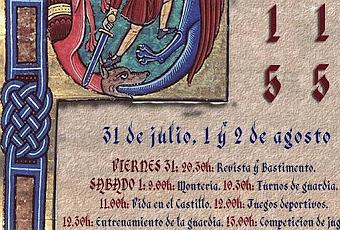 1 1
5 5
31 de julio, 1 y 2 de agosto
VIERNES 31: 20,30h: Revista y Bastimento.
SABADO 1: 9,00h: Monteria. 10,30h: Turnos de guardia.
11,00h: Vida en el Castillo. 12,00h: Juegos deportivos.
12,30h: Entrenamiento de la guardia. 13,00h: Competicion de jug